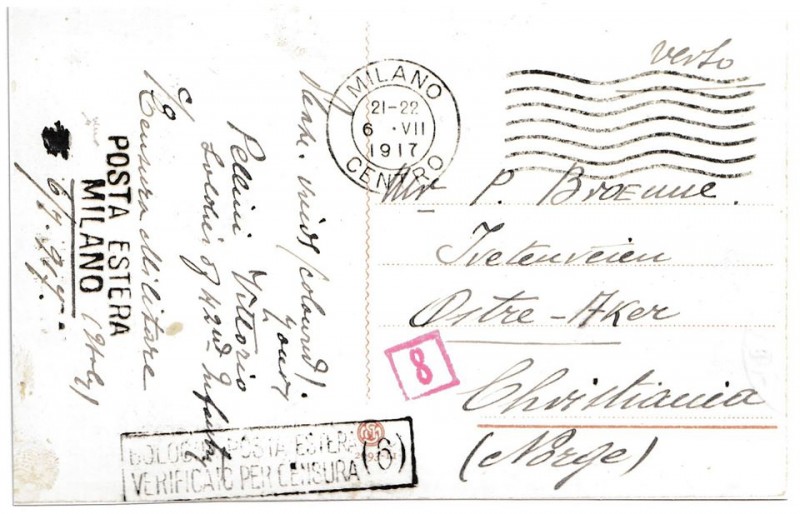 verso
MILANO
21-22
6 · VII
1917
CENTRO
Mr P. Broenne.
Ivetenveien
Ostre-Aker
Christiania
(Norge)
8
views/colound/.
Yours
Pellini Vittorio
Soldier of 42nd Infantry
c/o
Censura Militare
POSTA ESTERA
MILANO
(Italy)
6/7. 917.
BOLOGNA POSTA ESTERA
VERIFICATO PER CENSURA
(6)